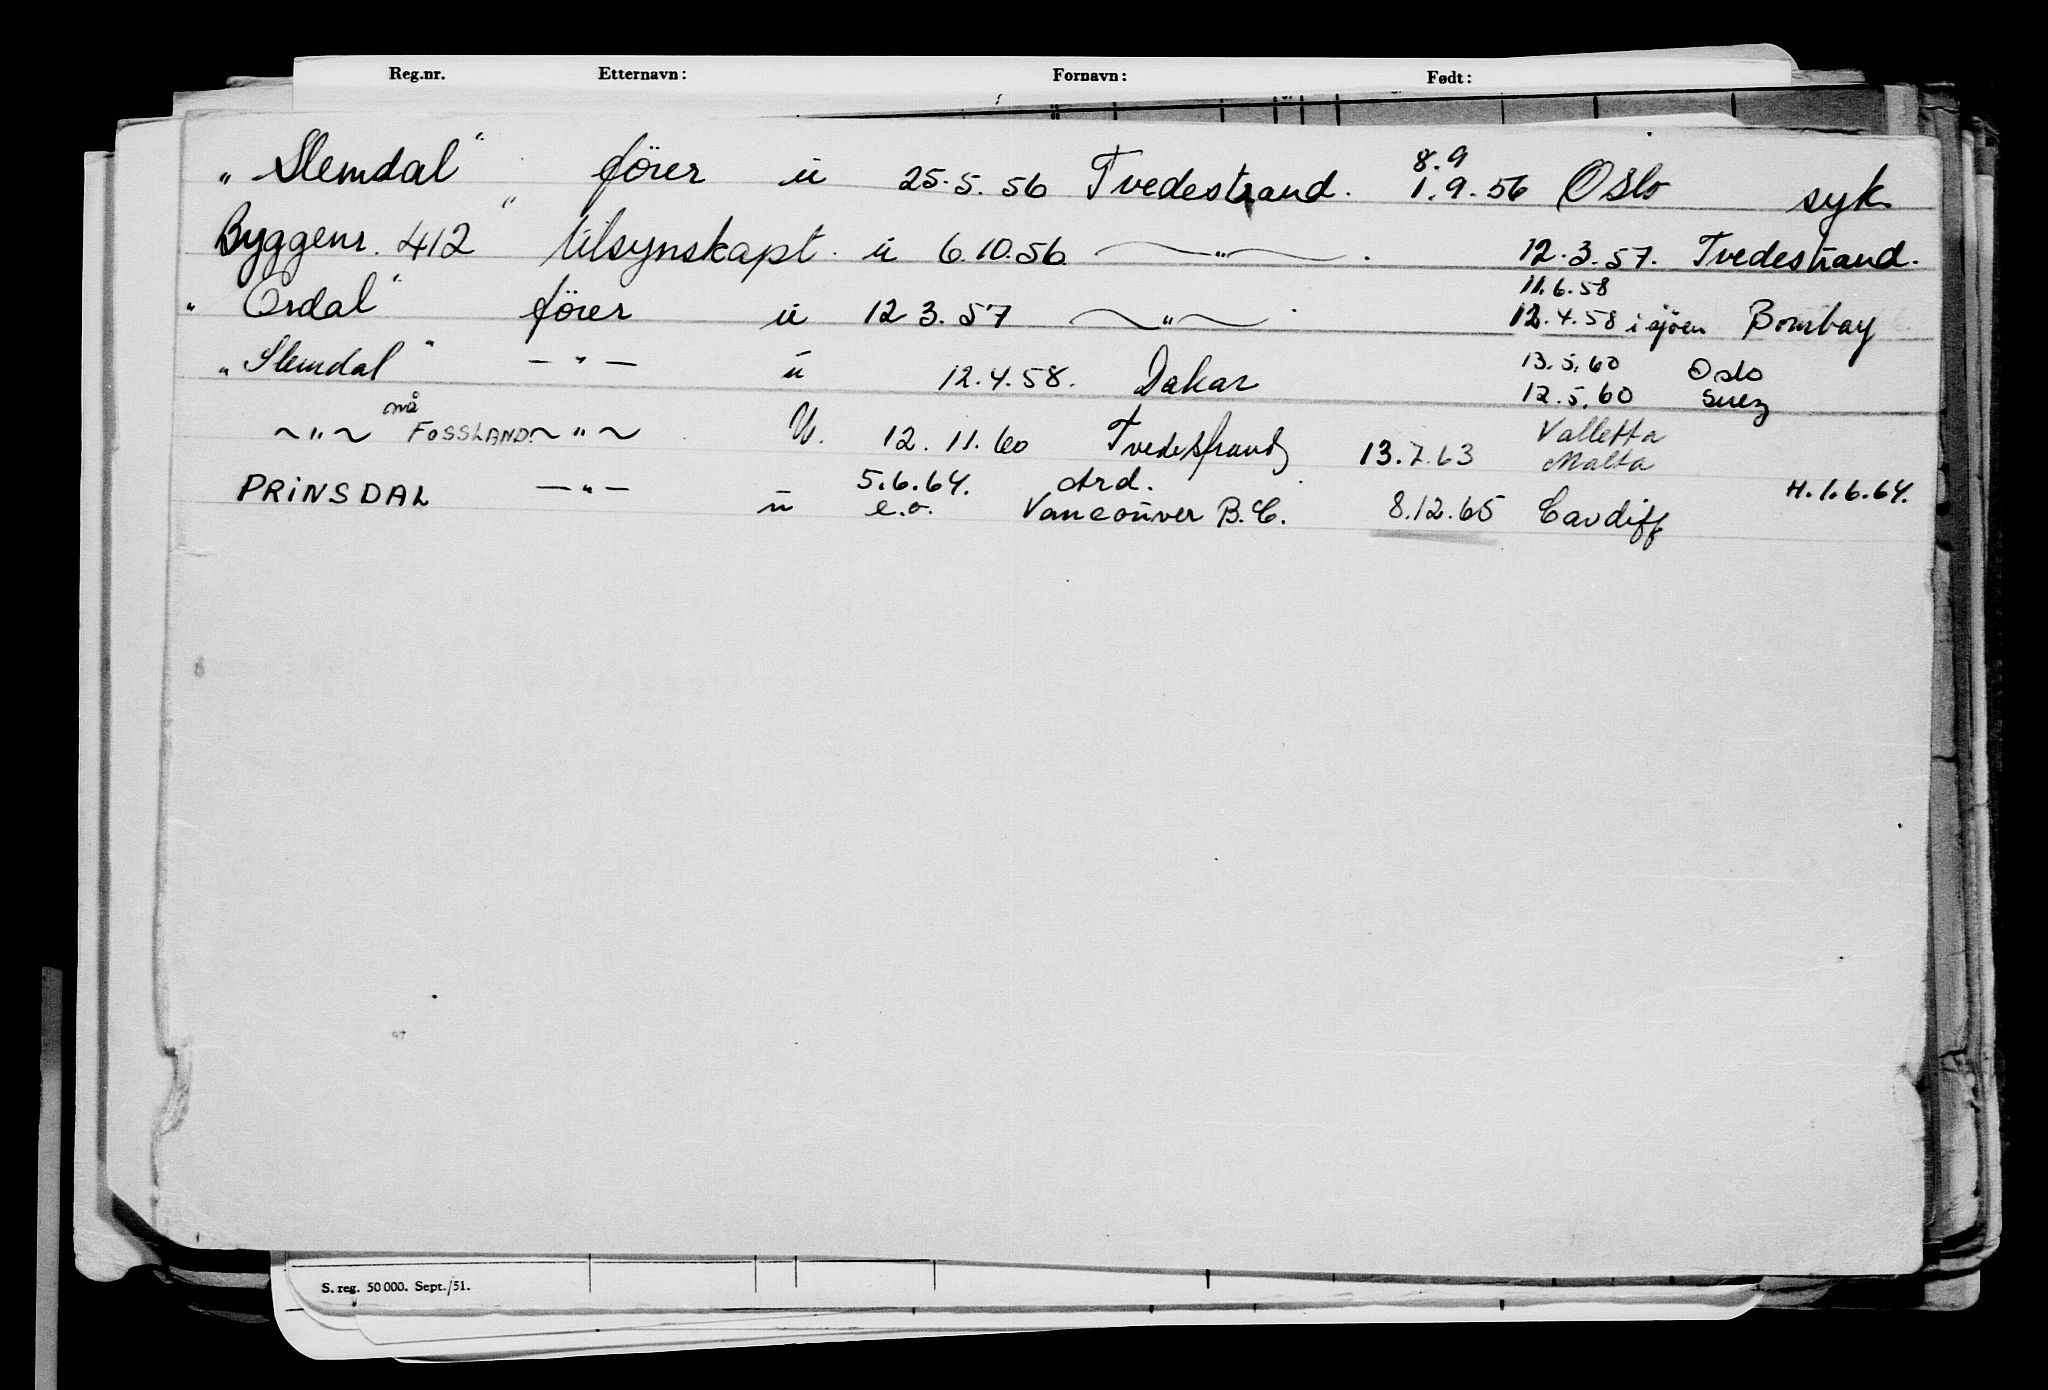 Reg.nr. Etternavn: Fornavn: Født:
8.9
„Slemdal" fører u 25.5.56 Tvedestrand. 1.9.56 Oslo syk
Byggenr. 412" tilsynskapt. u 6.10.56. —"— . 12.3.57. Tvedestrand.
11.6.58
"Ordal" fører u 12 3.57 —"— . 12.4.58 i sjøen Bombay
13.5.60 Oslo
„Slemdal" —"— u 12.4.58. Dakar 12.5.60 Suez
nå Valletta
~"~ FOSSLAND. ~"~ U. 12.11.60 Tvedestrand 13.7.63 Malta
5.6.64. Ard. H.1.6.64.
PRINSDAL —"— u e.o. Vancouver B.C. 8.12.65 Cardiff
S. reg. 50 000. Sept./51.